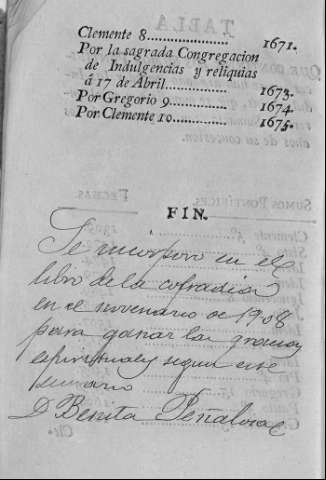 Clemente 8..................... 1671.
Por la sagrada Congregacion
de Indulgencias y reliquias
á 17 de Abril............... 1673.
Por Gregorio 9.............. 1674.
Por Clemente 10............. 1675.
FIN.
Se incorporo en el
libro de la cofradia
en el novenario de 1908
para ganar las gracias
espirituales segun este
sumario
D Benita Peñalosa